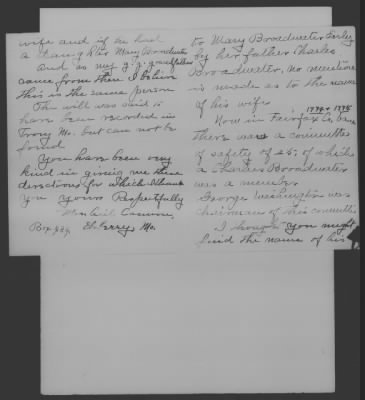 to Mary Broadwater Turley
by her father Charles
Broadwater, no mention
is made as to the name
of his wife
Now in Fairfax Co. 1774 & 1775
there was a committee
of safety of 25, of which
a Charles Broadwater
was a member
George Washington was
chairman of this committee
I hoped you might
find the name of his
wife and if he had
a daughter Mary Broadwater
And as my g. g. grandfather
came from there I believe
this is the same person
The will was said to
have been recorded in
Troy Mo. but can not be
found
You have been very
kind in giving me these
directions for which I thank
you Yours Respectfully
Mrs. Cannon,
Box 424, Elsberry, Mo.